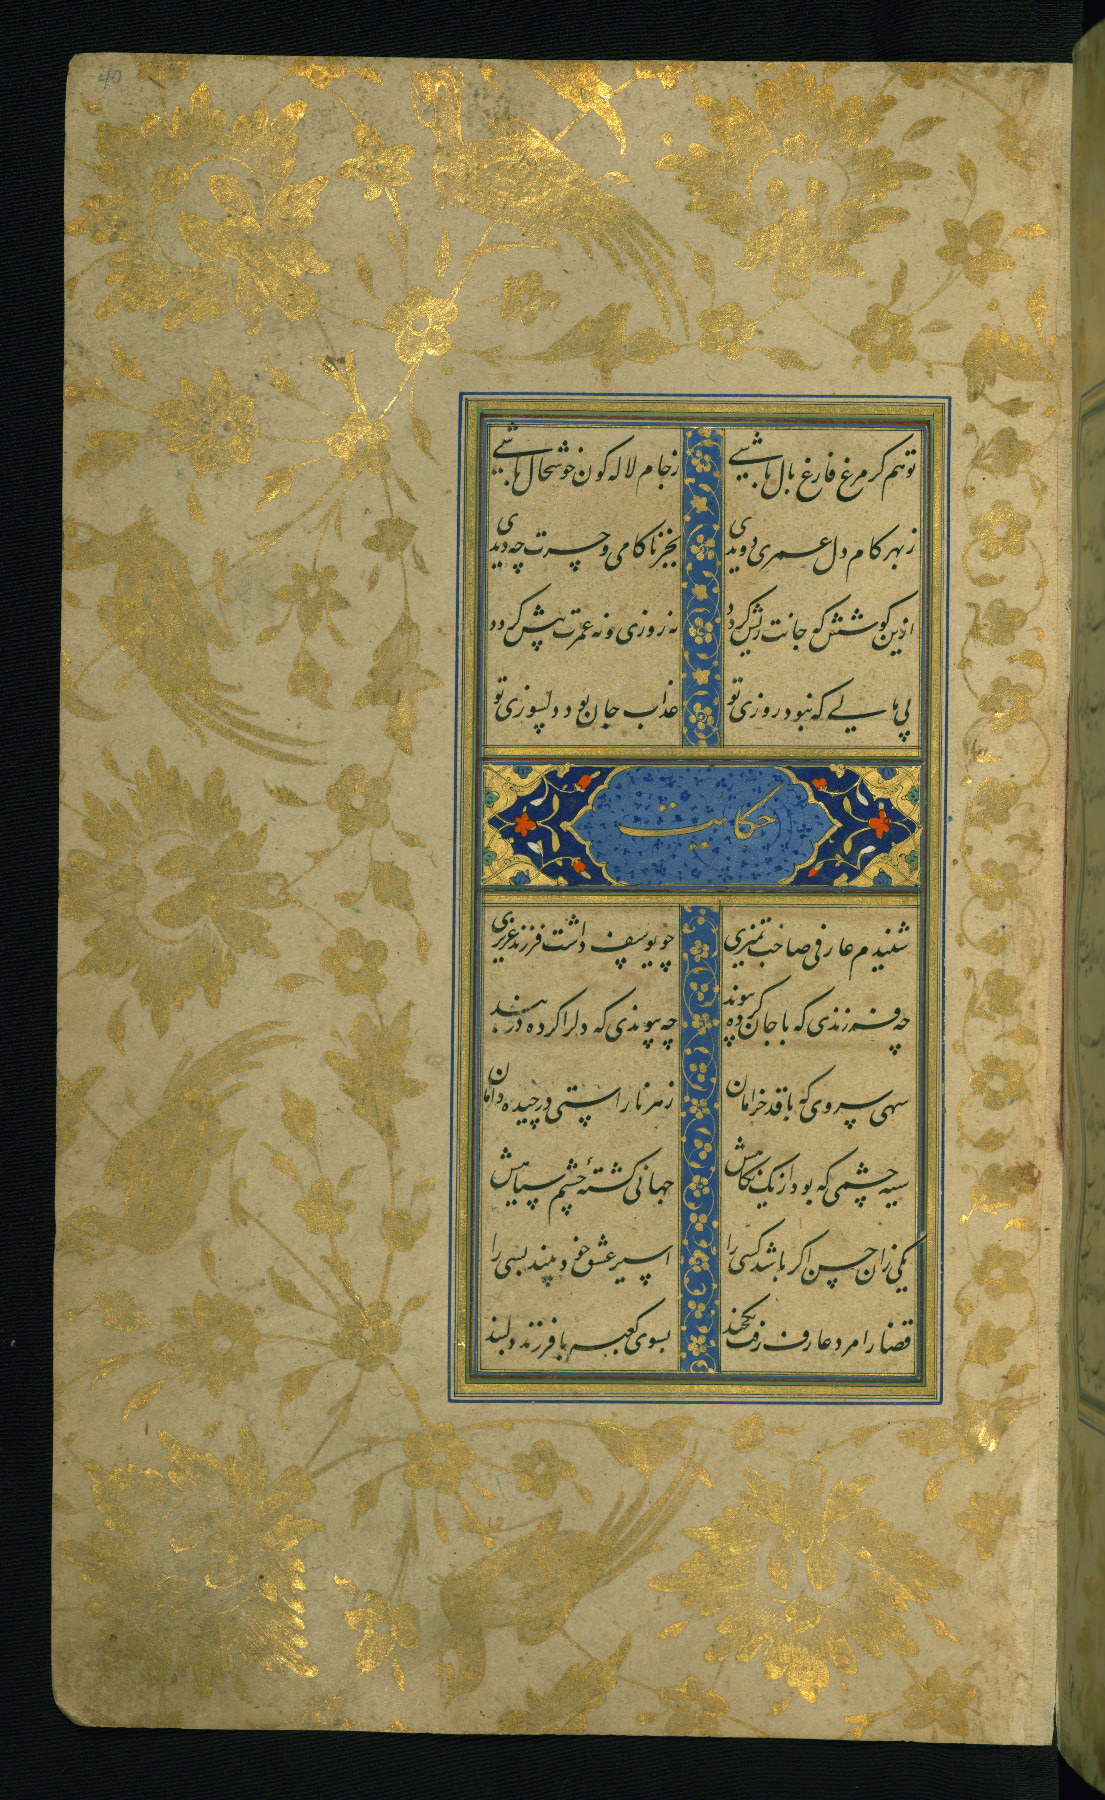 40
تو هم کر مرغ فارغ بال باشی
ز جام لاله کون خوشحال باشی
ز بهر کام دل عمری دویدی
بجز ناکامی و حسرت چه دیدی
ازین کوشش که جانت ریش کردد
نه روزی و نه عمرت پیش کردد
پی مالی که نبود روزی تو
عذاب جان بود دلسوزی تو
حکایت
شنیدم عارفی صاحب تمیزی
چو یوسف داشت فرزند عزیزی
چه فرزندی که با جان کرده پیوند
چه پیوندی که دلرا کرده در بند
سهی سروی که با قد خرامان
ز هر ناراستی در چیده دامان
سیه چشمی که بود از یک نکاهش
جهانی کشتهٔ چشم سیاهش
یکی زان حسن اکر باشد کسی را
اسیر عشق خود بیند بسی را
قضا را مرد عارف رفت یکچند
بسوی کعبه با فرزند دلبند